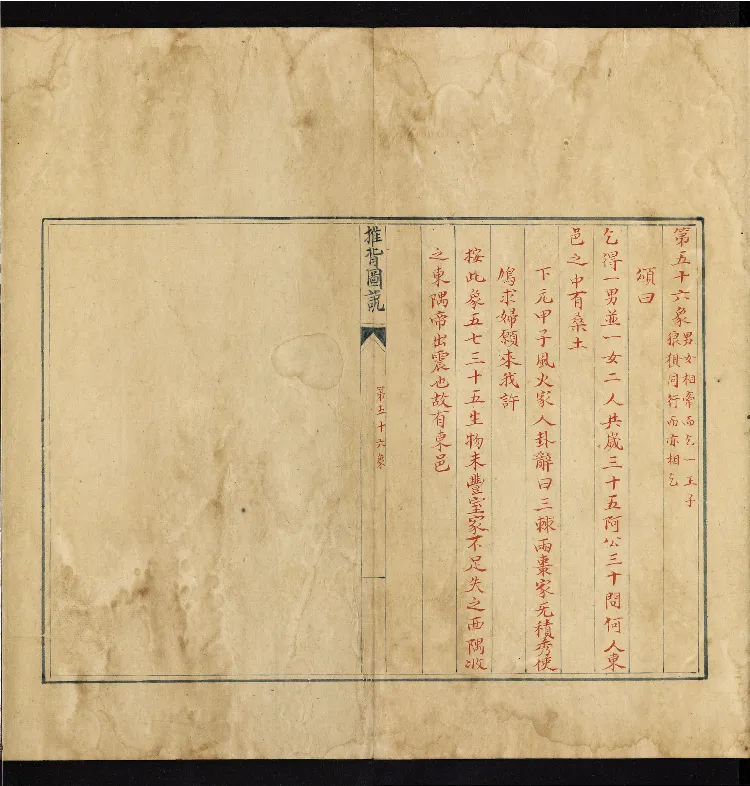 第五十六象 男女相牽而乞一王子
狼狽同行而亦相乞
頌曰
乞得一男並一女二人共歲三十五阿公三十問何人東
邑之中有桑土
下元甲子風火家人卦辭曰三棘兩棗家无積秀使
鳩求婦願來我許
按此象五七三十五生物未豐室家不足失之西隅收
之東隅帝出震也故有東邑
推背圖說
第五十六象